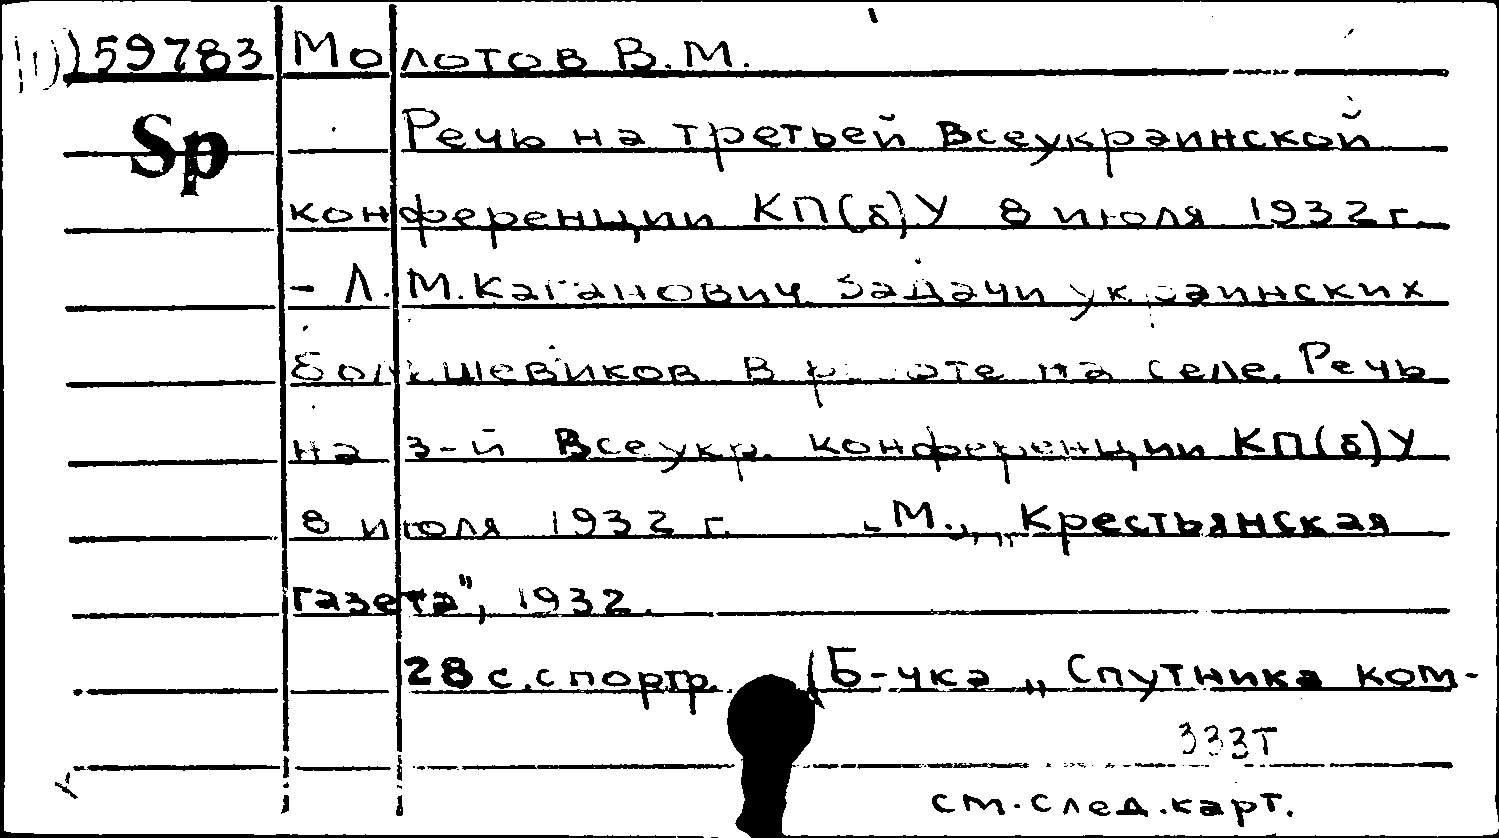 159783 Молотов В.М.
Sp Речь на третьей Всеукраинской
конференции КП(б)У 8 июля 1932 г.
- Л.М.Каганович. Задачи украинских
большевиков в работе на селе. Речь
на 3-й Всеукр. конференции КП(б)У
8 июля 1932 г. -М., „Крестьянская
газета", 1932.
28 с. с портр. (Б-чка „Спутника ком-
333Т
см.след.карт.